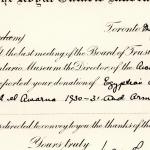 The Royal Ontario Museum
Toronto
t the last meeting of the Board of Trus
ntario Museum the Director of the
eported your donation of Egyptian
el Amarna 1930-31 and Arm
directed to convey to you the thanks of the
Yours truly